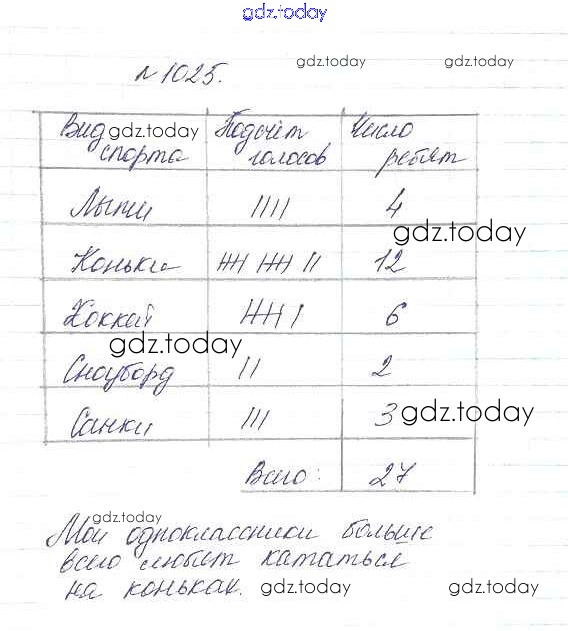 gdz.today
№1025.
gdz.today
gdz.today
Вид спорта | Подсчёт голосов | Число ребят
gdz.today
Лыжи | //// | 4
gdz.today
Коньки | 卌 卌 // | 12
Хоккей | 卌 / | 6
gdz.today
Сноуборд | // | 2
Санки | /// | 3
gdz.today
Всего: 27
gdz.today
Мои одноклассники больше
всего любят кататься
на коньках.
gdz.today
gdz.today